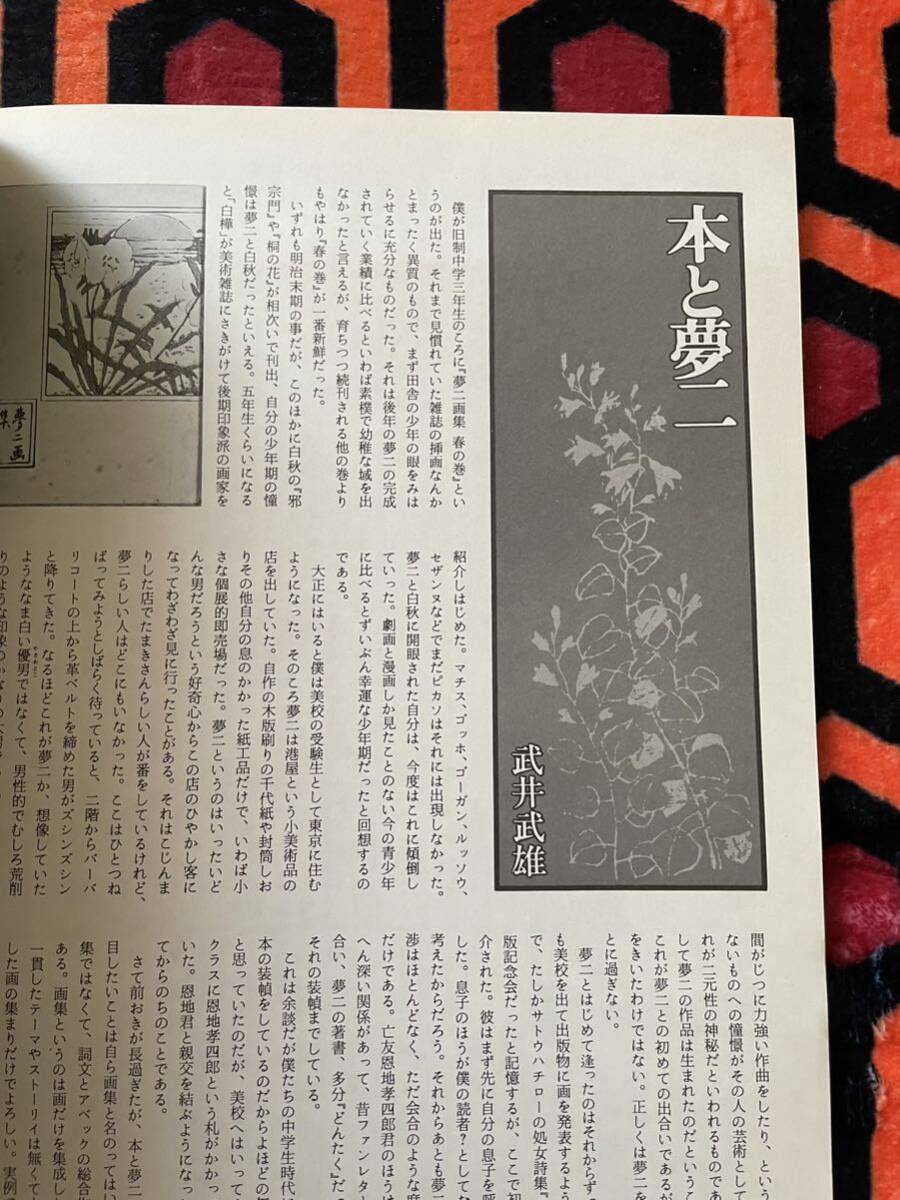 本と夢二
武井武雄
僕が旧制中学三年生のころに『夢二画集 春の巻』とい
うのが出た。それまで見慣れていた雑誌の挿画なんか
とまったく異質のもので、まず田舎の少年の眼をみは
らせるに充分なものだった。それは後年の夢二の完成
されていく業績に比べるといわば素樸で幼稚な域を出
なかったと言えるが、育ちつつ続刊される他の巻より
もやはり『春の巻』が一番新鮮だった。
いずれも明治末期の事だが、このほかに白秋の『邪
宗門』や『桐の花』が相次いで刊出、自分の少年期の憧
憬は夢二と白秋だったといえる。五年生くらいになる
と「白樺」が美術雑誌にさきがけて後期印象派の画家を
夢二画
集
紹介しはじめた。マチス、ゴッホ、ゴーガン、ルッソウ、
セザンヌなどでまだピカソはそれには出現しなかった。
夢二と白秋に開眼された自分は、今度はこれに傾倒し
ていった。劇画と漫画しか見たことのない今の青少年
に比べるとずいぶん幸運な少年期だったと回想するの
である。
大正にはいると僕は美校の受験生として東京に住む
ようになった。そのころ夢二は港屋という小美術品の
店を出していた。自作の木版刷りの千代紙や封筒しお
りその他自分の息のかかった紙工品だけで、いわば小
さな個展的即売場だった。夢二というのはいったいど
んな男だろうという好奇心からこの店のひやかし客に
なってわざわざ見に行ったことがある。それはこじんま
りした店でたまきさんらしい人が番をしているけれど、
夢二らしい人はどこにもいなかった。ここはひとつね
ばってみようとしばらく待っていると、二階からバーバ
リコートの上から革ベルトを締めた男がズシンズシン
と降りてきた。なるほどこれが夢二か、想像していた
ようななま白い優男ではなくて、男性的でむしろ荒削
やさおとこ
間がじつに力強い作曲をしたり、とい
ないものへの憧憬がその人の芸術とし
れが二元性の神秘だといわれるものであ
して夢二の作品は生まれたのだというこ
これが夢二との初めての出合いであるが
をきいたわけではない。正しくは夢二を
とに過ぎない。
夢二とはじめて逢ったのはそれからずっ
も美校を出て出版物に画を発表するよう
で、たしかサトウハチローの処女詩集『
版記念会だったと記憶するが、ここで初
介された。彼はまず先に自分の息子を呼
した。息子のほうが僕の読者？としてな
考えたからだろう。それからあとも夢二
渉はほとんどなく、ただ会合のような席
だけである。亡友恩地孝四郎君のほうは
へん深い関係があって、昔ファンレター
合い、夢二の著書、多分『どんたく』だっ
それの装幀までしている。
これは余談だが僕たちの中学生時代に
本の装幀をしているのだからよほどの
と思っていたのだが、美校へはいって
クラスに恩地孝四郎という札がかかっ
いた。恩地君と親交を結ぶようになっ
てからのちのことである。
さて前おきが長過ぎたが、本と夢二
目したいことは自ら画集と名のってはい
集ではなくて、詞文とアベックの総合出
ある。画集というのは画だけを集成し
一貫したテーマやストーリイは無くて
した画の集まりだけでよろしい。実例